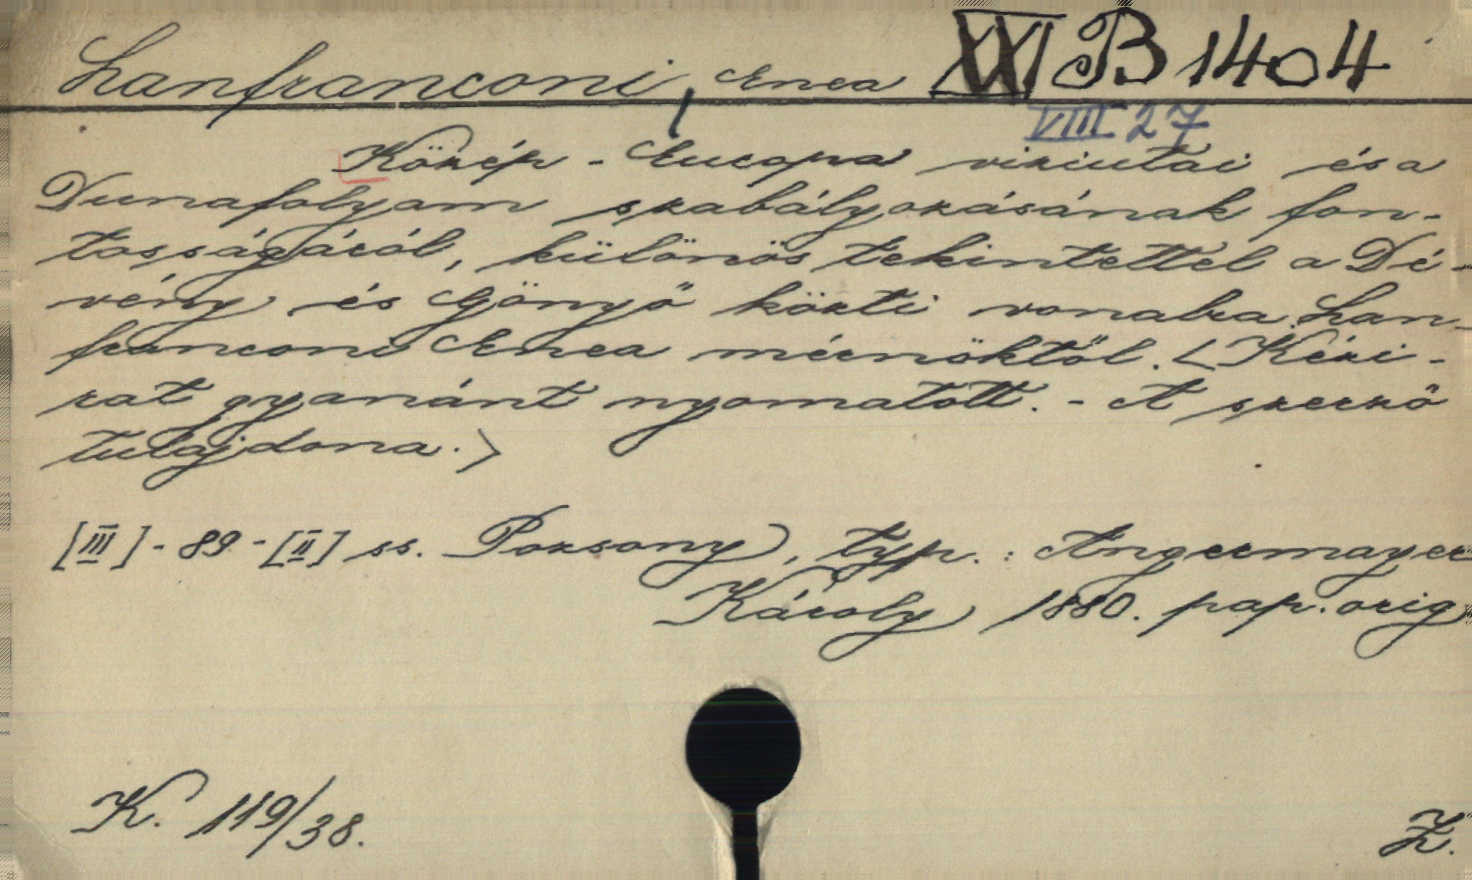 Lanfranconi, Enea XXI B 1404
VIII 27
Közép - Europa viziutai és a
Dunafolyam szabályozásának fon-
tosságáról, különös tekintettel a Dé-
vény és Gönyő közti vonalra. Lan-
franconi Enea mérnöktől. <Kézi-
rat gyanánt nyomatott. - A szerző
tulajdona.>
[III] - 89 - [II] ss. Pozsony, typ. : Angermayer
Károly 1880. pap. orig
K. 119/38.
Z.